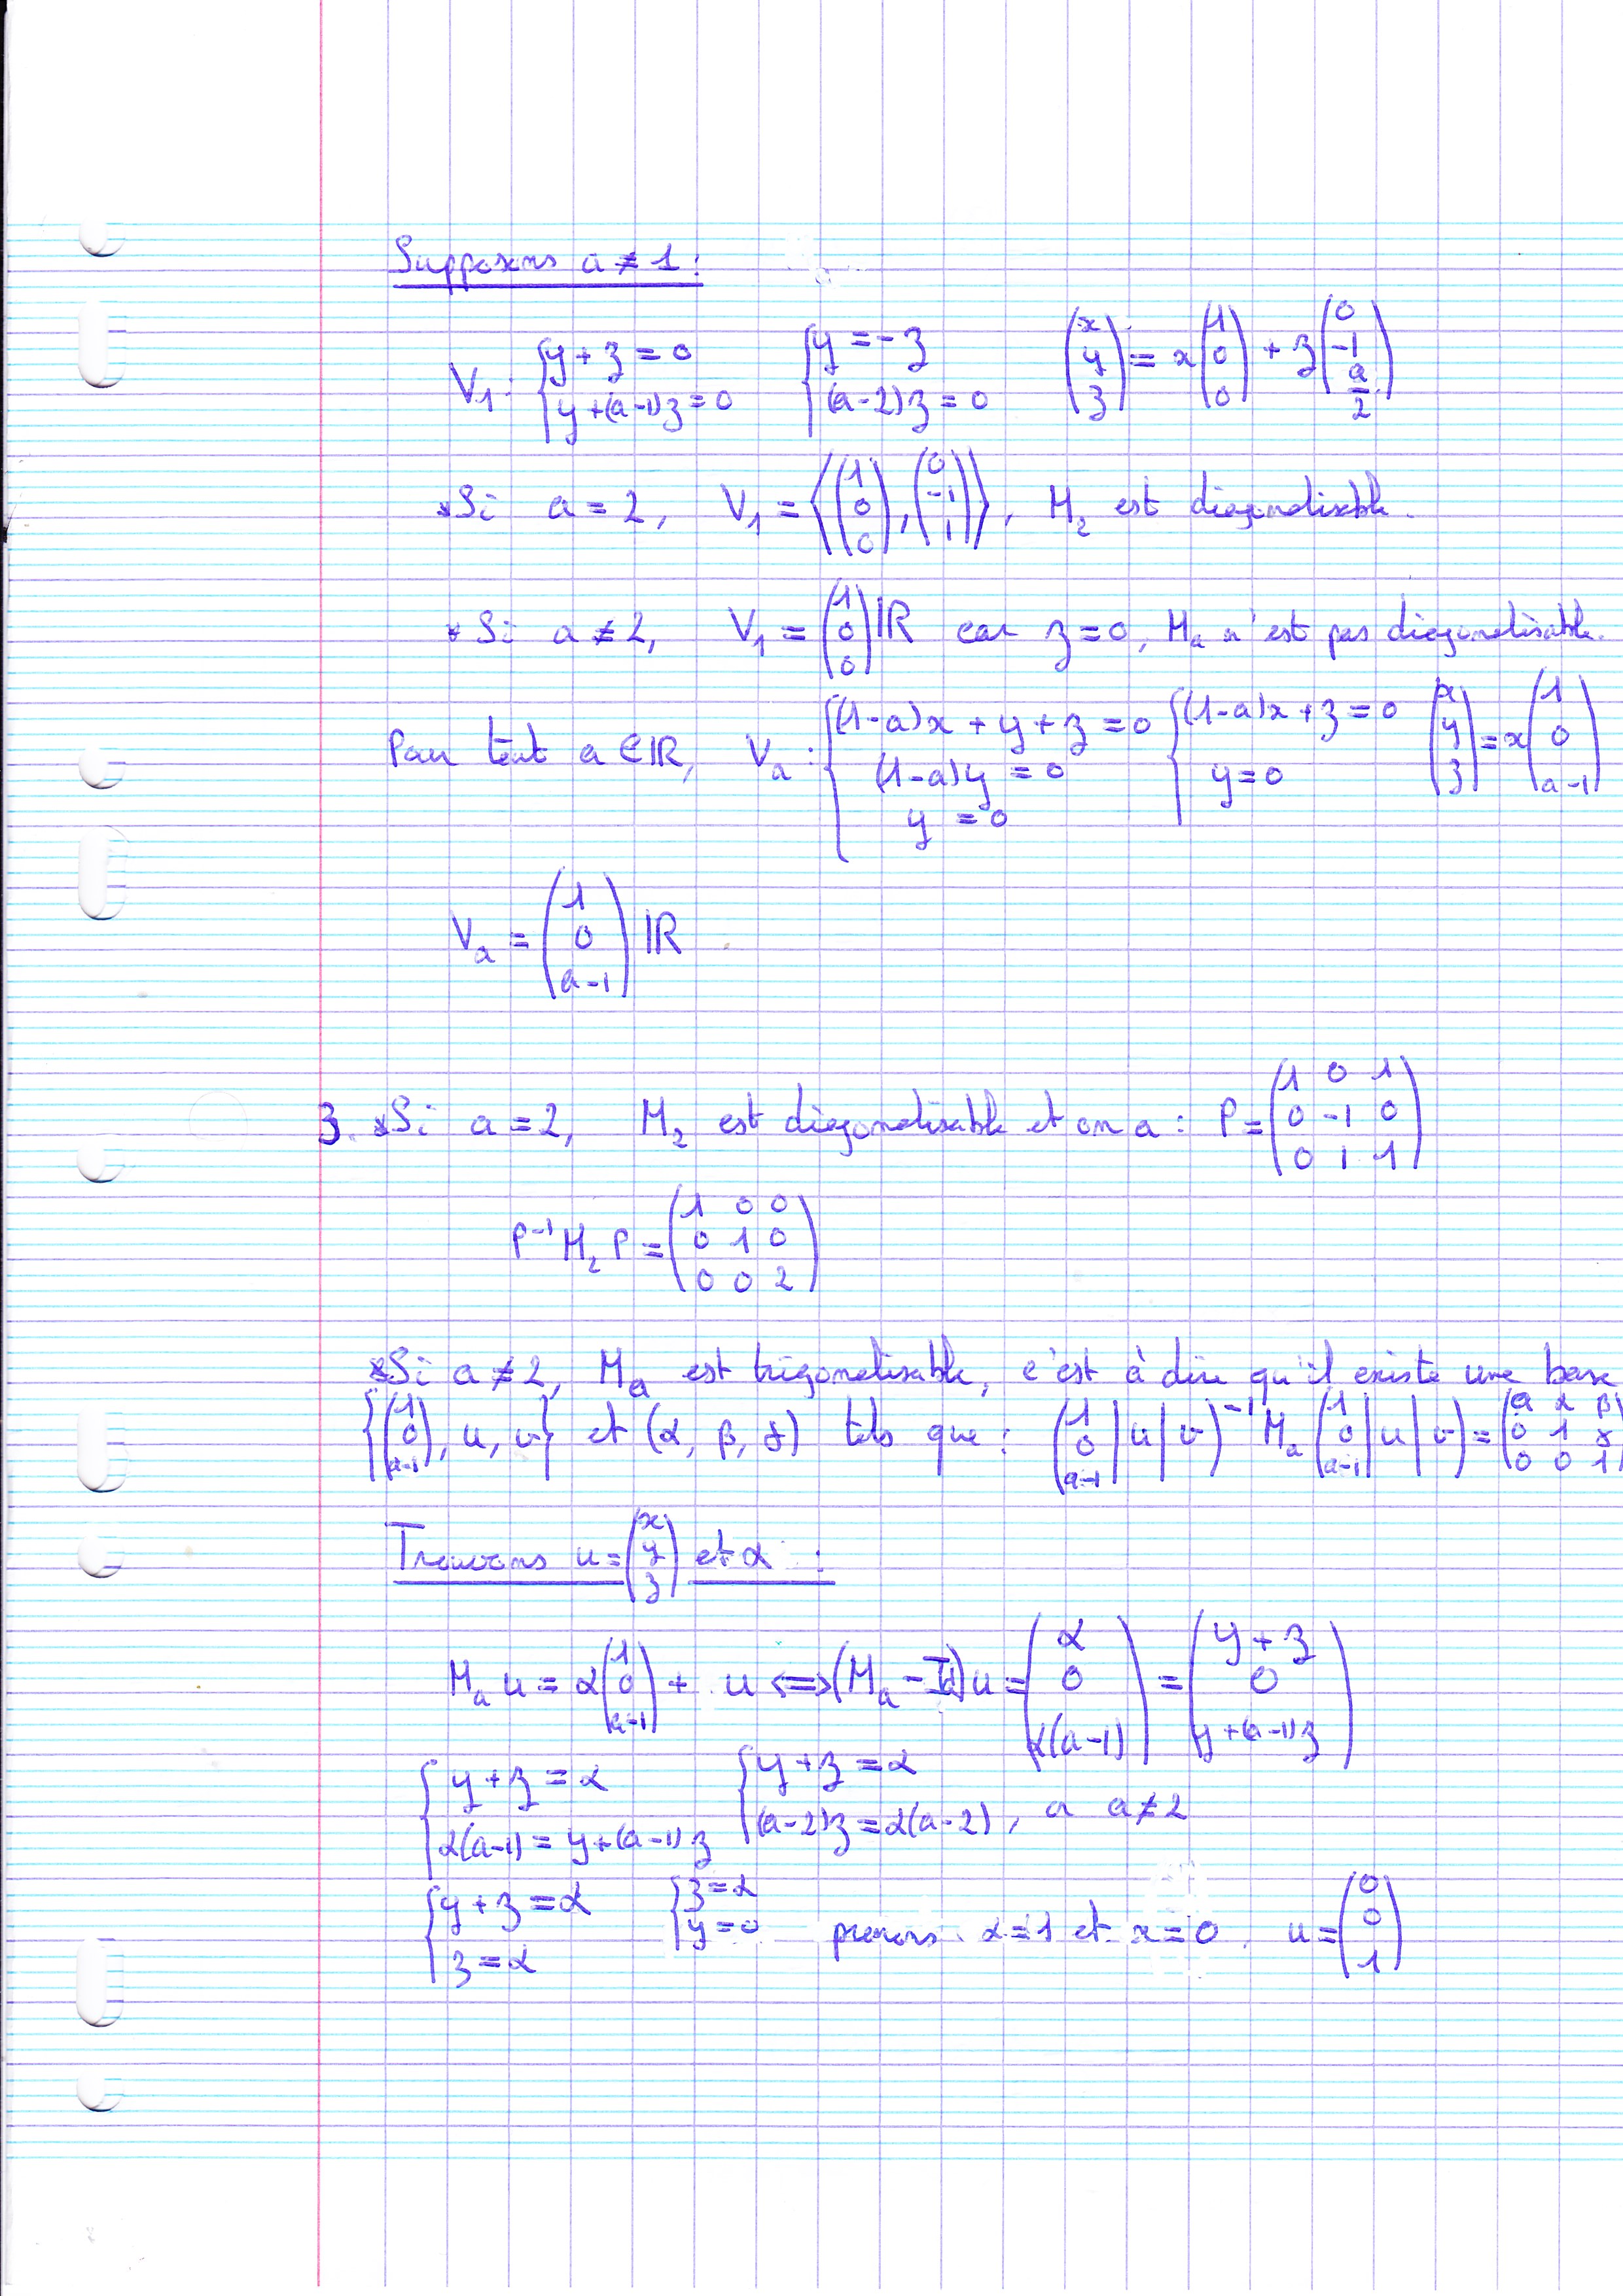 Supposons a ≠ 1 :
V₁ : { y + z = 0 ; y + (a-1)z = 0 { y = -z ; (a-2)z = 0 (x ; y ; z) = x (1 ; 0 ; 0) + z (0 ; -1 ; a/2)
* Si a = 2, V₁ = ⟨(1 ; 0 ; 0), (0 ; -1 ; 1)⟩, M₂ est diagonalisable.
* Si a ≠ 2, V₁ = (1 ; 0 ; 0) ℝ car z = 0, Mₐ n'est pas diagonalisable.
Pour tout a ∈ ℝ, Vₐ : { (1-a)x + y + z = 0 ; (1-a)y = 0 ; y = 0 { (1-a)x + z = 0 ; y = 0 (x ; y ; z) = x (1 ; 0 ; a-1)
Vₐ = (1 ; 0 ; a-1) ℝ
3. * Si a = 2, M₂ est diagonalisable et on a : P = (1 0 1 ; 0 -1 0 ; 0 1 1)
P⁻¹ M₂ P = (1 0 0 ; 0 1 0 ; 0 0 2)
* Si a ≠ 2, Mₐ est trigonalisable, c'est à dire qu'il existe une base
{(1 ; 0 ; a-1), u, v} et (α, β, γ) tels que : (1 ; 0 ; a-1 | u | v)⁻¹ Mₐ (1 ; 0 ; a-1 | u | v) = (a α β ; 0 1 γ ; 0 0 1)
Trouvons u = (x ; y ; z) et α :
Mₐ u = α (1 ; 0 ; a-1) + u ⟺ (Mₐ - Id) u = (α ; 0 ; α(a-1)) = (y + z ; 0 ; y + (a-1)z)
{ y + z = α ; α(a-1) = y + (a-1)z { y + z = α ; (a-2)z = α(a-2), or a ≠ 2
{ y + z = α ; z = α { z = α ; y = 0 prenons α = 1 et x = 0. u = (0 ; 0 ; 1)